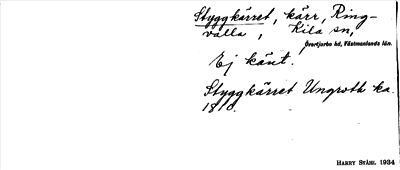 Styggkärret, kärr, Ring-
valla, Kila sn,
Övertjurbo hd, Västmanlands län.
Ej känt.
Styggkärret Ungroth ka.
1810.
HARRY STÅHL 1934